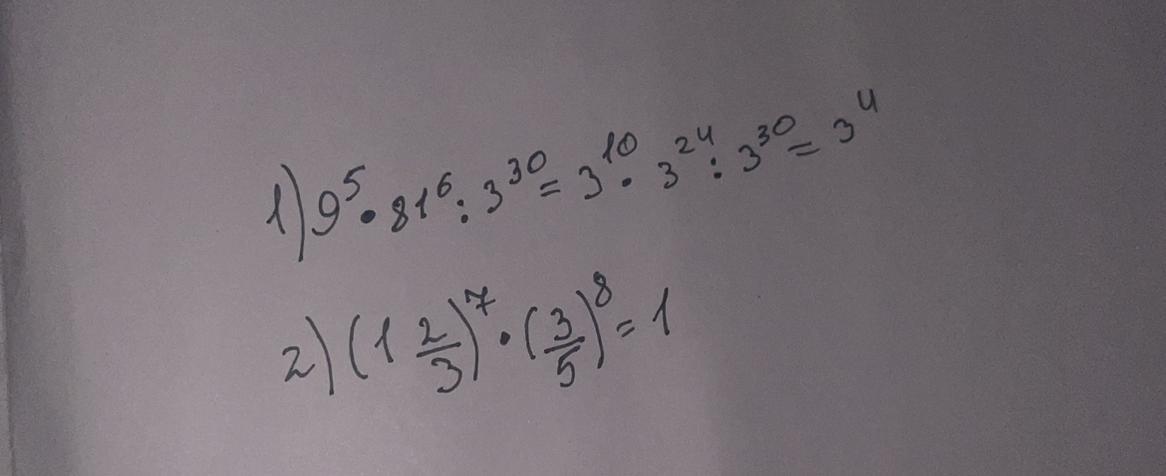 1) 9⁵ • 81⁶ : 3³⁰ = 3¹⁰ • 3²⁴ : 3³⁰ = 3⁴
2) (1 2/3)⁷ • (3/5)⁸ = 1